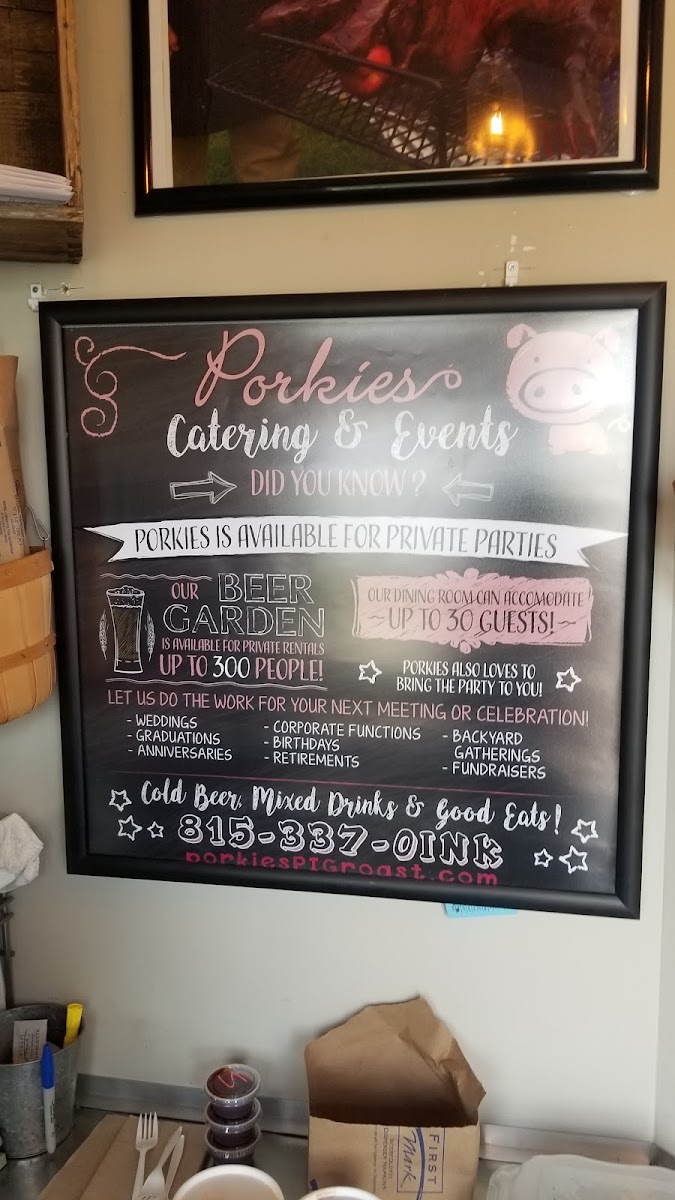 Porkies
Catering & Events
DID YOU KNOW?
PORKIES IS AVAILABLE FOR PRIVATE PARTIES
OUR BEER
GARDEN
IS AVAILABLE FOR PRIVATE RENTALS
UP TO 300 PEOPLE!
OUR DINING ROOM CAN ACCOMODATE
~ UP TO 30 GUESTS! ~
PORKIES ALSO LOVES TO
BRING THE PARTY TO YOU!
LET US DO THE WORK FOR YOUR NEXT MEETING OR CELEBRATION!
- WEDDINGS
- GRADUATIONS
- ANNIVERSARIES
- CORPORATE FUNCTIONS
- BIRTHDAYS
- RETIREMENTS
- BACKYARD
GATHERINGS
- FUNDRAISERS
Cold Beer, Mixed Drinks & Good Eats!
815-337-OINK
porkiesPIGroast.com
FIRST
Mark